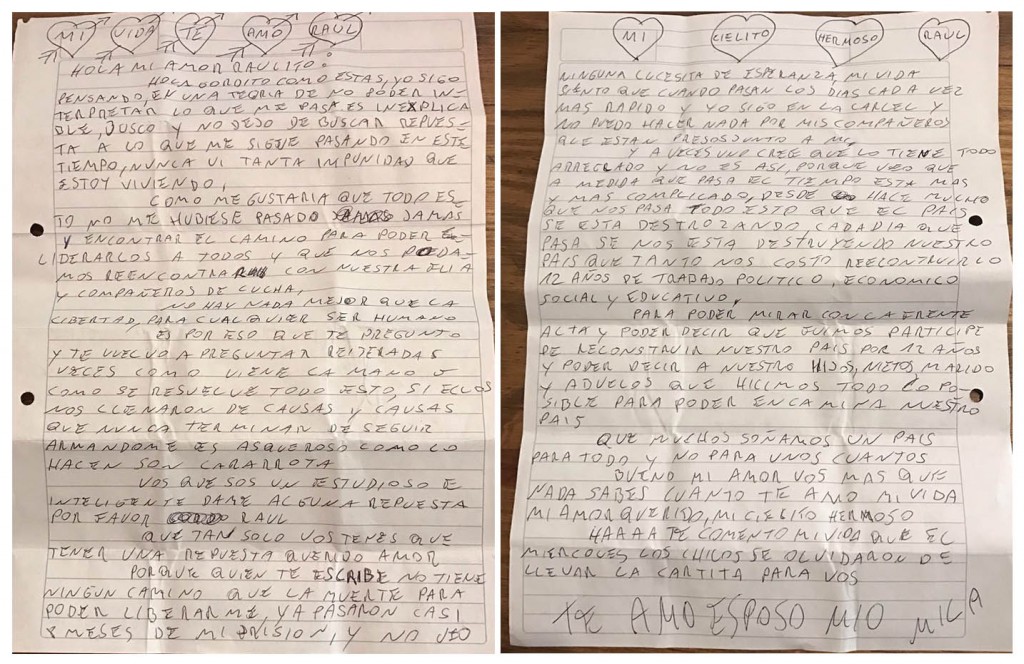 MI VIDA TE AMO RAUL
HOLA MI AMOR RAULITO:
HOLA GORDITO COMO ESTAS, YO SIGO
PENSANDO, EN UNA TEORIA DE NO PODER IN-
TERPRETAR LO QUE ME PASA ES INEXPLICA
BLE, BUSCO Y NO DEJO DE BUSCAR REPUES-
TA A LO QUE ME SIGUE PASANDO EN ESTE
TIEMPO, NUNCA VI TANTA IMPUNIDAD QUE
ESTOY VIVIENDO,
COMO ME GUSTARIA QUE TODO ES
TO NO ME HUBIESE PASADO JAMAS
Y ENCONTRAR EL CAMINO PARA PODER
LIDERARLOS A TODOS Y QUE NOS PODA-
MOS REENCONTRAR CON NUESTRA
Y COMPAÑEROS DE LUCHA,
NO HAY NADA MEJOR QUE LA
LIBERTAD, PARA CUALQUIER SER HUMANO
ES POR ESO QUE TE PREGUNTO
Y TE VUELVO A PREGUNTAR REITERADAS
VECES COMO VIENE LA MANO
COMO SE RESUELVE TODO ESTO, SI ELLOS
NOS LLENARON DE CAUSAS Y CAUSAS
QUE NUNCA TERMINAN DE SEGUIR
ARMANDOME ES ASQUEROSO COMO LO
HACEN SON CARARROTA
VOS QUE SOS UN ESTUDIOSO E
INTELIGENTE DAME ALGUNA REPUESTA
POR FAVOR RAUL
QUE TAN SOLO VOS TENES QUE
TENER UNA REPUESTA QUERIDO AMOR
PORQUE QUIEN TE ESCRIBE NO TIENE
NINGUN CAMINO QUE LA MUERTE PARA
PODER LIBERARME, YA PASARON CASI
8 MESES DE MI PRISION, Y NO VEO
MI CIELITO HERMOSO RAUL
NINGUNA LUCESITA DE ESPERANZA MI VIDA
SIENTO QUE CUANDO PASAN LOS DIAS CADA VEZ
MAS RAPIDO Y YO SIGO EN LA CARCEL Y
NO PUEDO HACER NADA POR MIS COMPAÑEROS
QUE ESTAN PRESOS JUNTO A MI,
Y A VECES UNO CREE QUE LO TIENE TODO
ARREGLADO Y NO ES ASI, PORQUE VEO QUE
A MEDIDA QUE PASA EL TIEMPO ESTA MAS
Y MAS COMPLICADO, DESDE HACE MUCHO
QUE NOS PASA TODO ESTO QUE EL PAIS
SE ESTA DESTROZANDO, CADA DIA QUE
PASA SE NOS ESTA DESTRUYENDO NUESTRO
PAIS QUE TANTO NOS COSTO REECONTRUIRLO
12 AÑOS DE TRABAJO POLITICO, ECONOMICO
SOCIAL Y EDUCATIVO,
PARA PODER MIRAR CON LA FRENTE
ALTA Y PODER DECIR QUE FUIMOS PARTICIPE
DE RECONSTRUIR NUESTRO PAIS POR 12 AÑOS
Y PODER DECIR A NUESTRO HIJOS, NIETOS MARIDO
Y ABUELOS QUE HICIMOS TODO LO PO-
SIBLE PARA PODER ENCAMINA NUESTRO
PAIS
QUE MUCHOS SOÑAMOS UN PAIS
PARA TODO Y NO PARA UNOS CUANTOS
BUENO MI AMOR VOS MAS QUE
NADA SABES CUANTO TE AMO MI VIDA
MI AMOR QUERIDO, MI CIELITO HERMOSO
HAAAA TE COMENTO MI VIDA QUE EL
MIERCOLES LOS CHICOS SE OLVIDARON DE
LLEVAR LA CARTITA PARA VOS
TE AMO ESPOSO MIO MILA